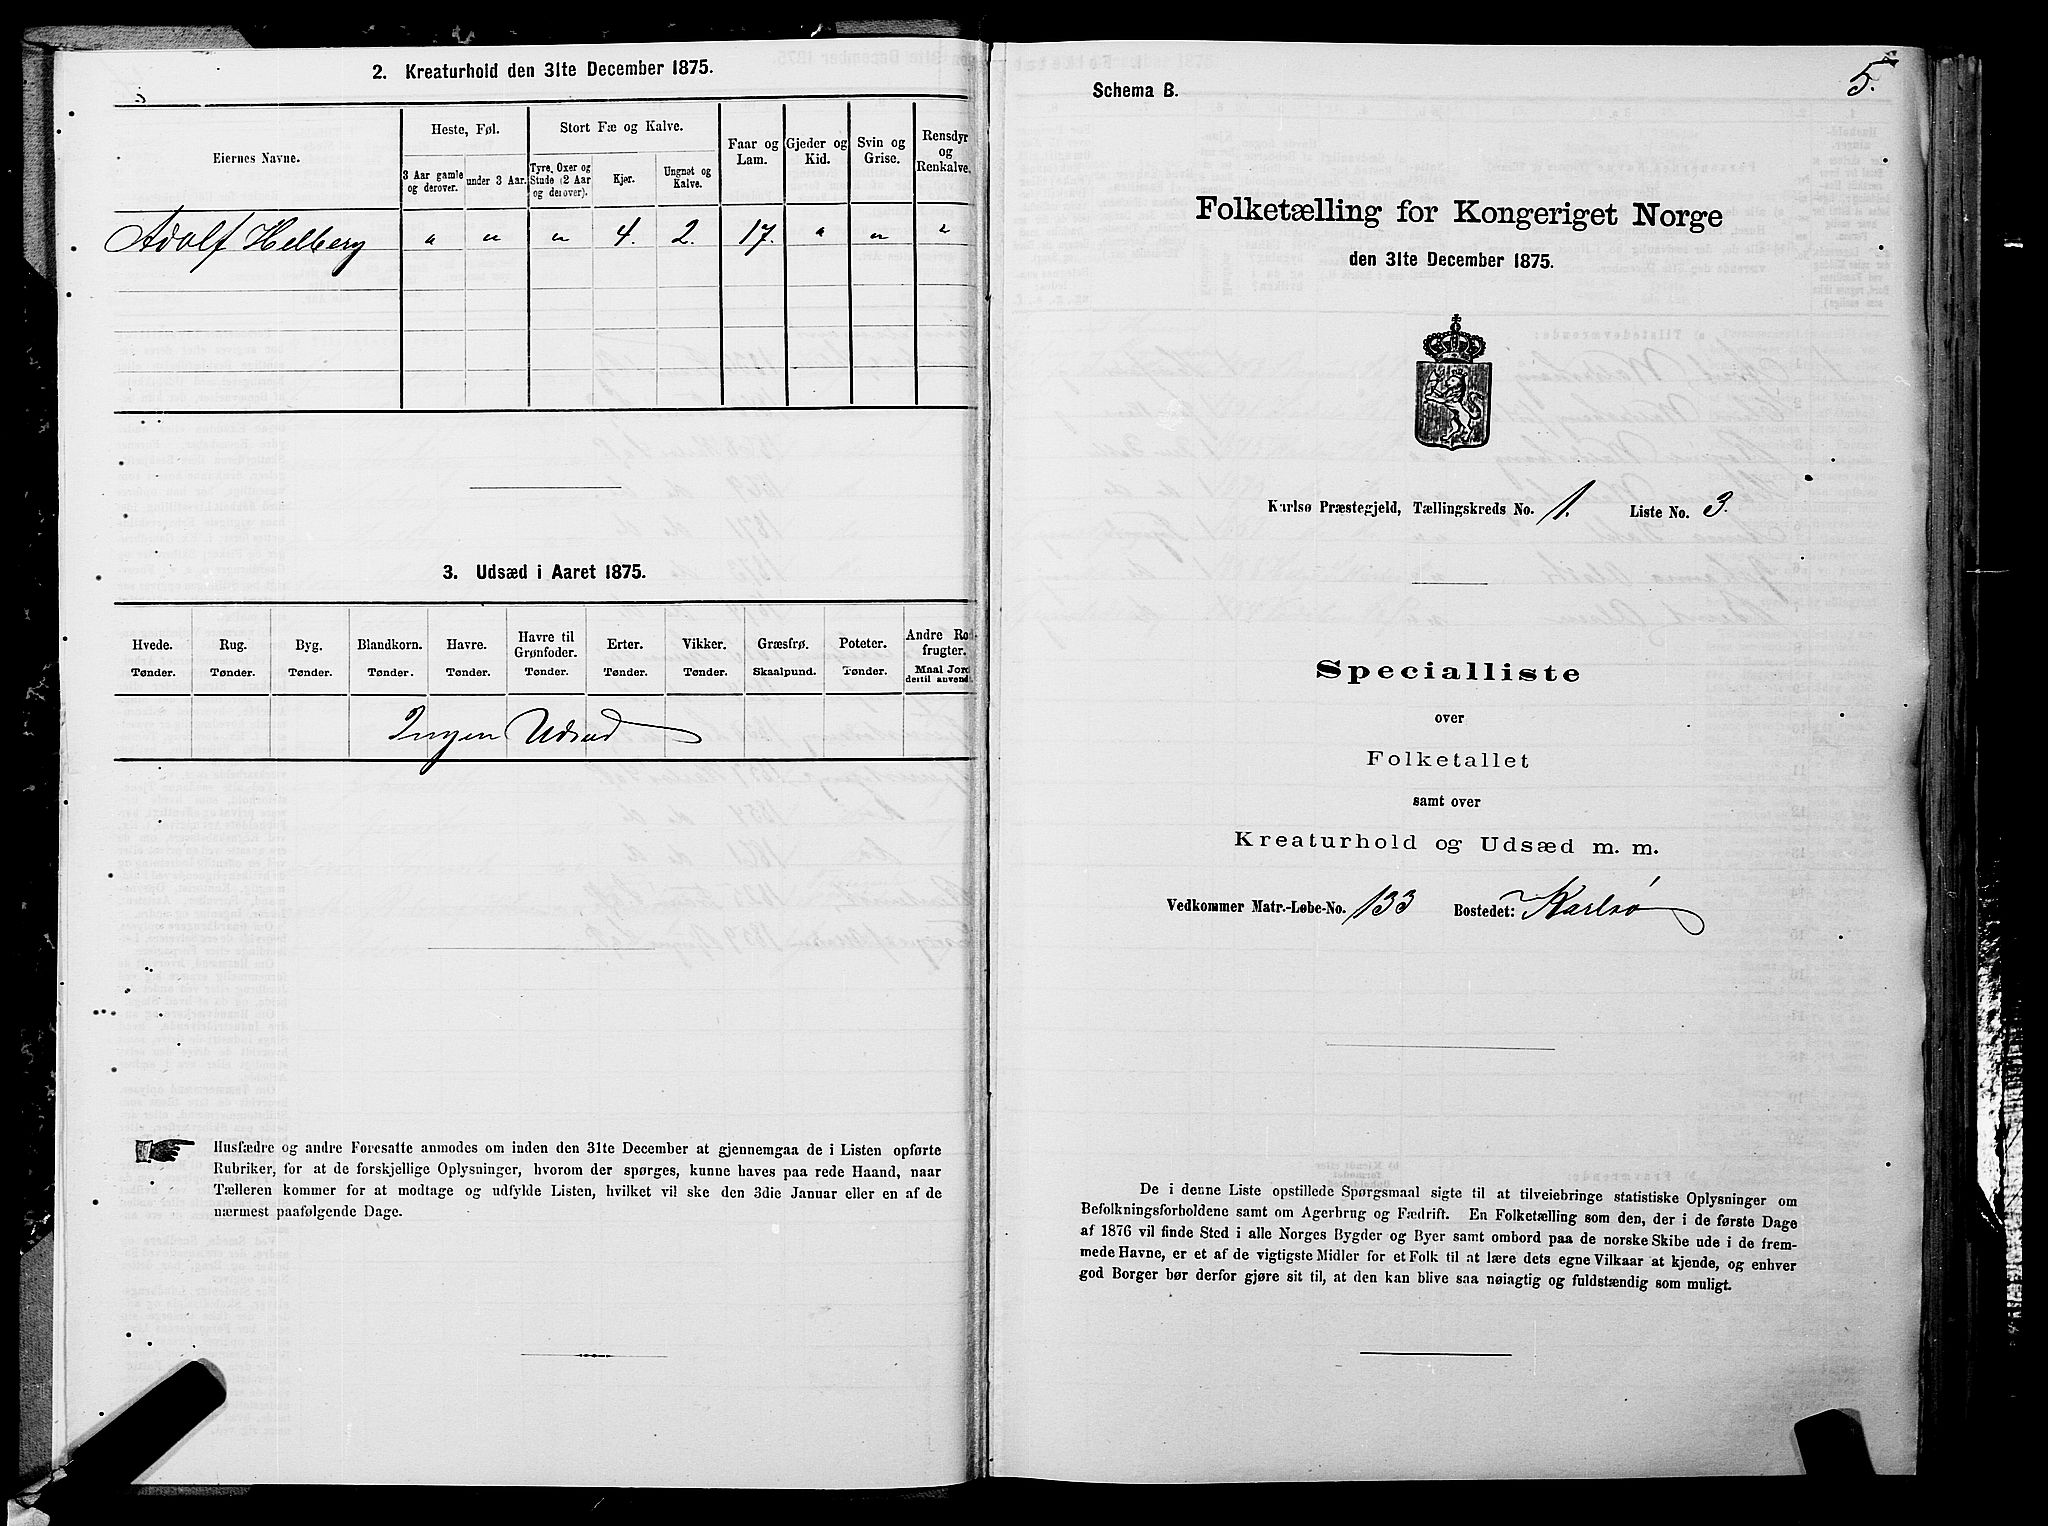 2. Kreaturhold den 31te December 1875.
Eiernes Navne.
Heste, Føl.
Stort Fæ og Kalve.
Faar og Lam.
Gjeder og Kid.
Svin og Grise.
Rensdyr og Renkalve.
3 Aar gamle og derover.
under 3 Aar.
Tyre, Oxer og Stude (2 Aar og derover).
Kjør.
Ungnøt og Kalve.
Adolf Helberg " " " 4. 2. 17. " " "
3. Udsæd i Aaret 1875.
Hvede. Rug. Byg. Blandkorn. Havre. Havre til Grønfoder. Erter. Vikker. Græsfrø. Poteter. Andre Rodfrugter.
Tønder. Tønder. Tønder. Tønder. Tønder. Tønder. Tønder. Tønder. Skaalpund. Tønder. Maal Jord dertil anvendt.
Ingen Udsæd
Husfædre og andre Foresatte anmodes om inden den 31te December at gjennemgaa de i Listen opførte
Rubriker, for at de forskjellige Oplysninger, hvorom der spørges, kunne haves paa rede Haand, naar
Tælleren kommer for at modtage og udfylde Listen, hvilket vil ske den 3die Januar eller en af de
nærmest paafølgende Dage.
5.
Schema B.
Folketælling for Kongeriget Norge
den 31te December 1875.
Karlsø Præstegjeld, Tællingskreds No. 1. Liste No. 3.
Specialliste
over
Folketallet
samt over
Kreaturhold og Udsæd m. m.
Vedkommer Matr.-Løbe-No. 133 Bostedet: Karlsø
De i denne Liste opstillede Spørgsmaal sigte til at tilveiebringe statistiske Oplysninger om
Befolkningsforholdene samt om Agerbrug og Fædrift. En Folketælling som den, der i de første Dage
af 1876 vil finde Sted i alle Norges Bygder og Byer samt ombord paa de norske Skibe ude i de frem-
mede Havne, er et af de vigtigste Midler for et Folk til at lære dets egne Vilkaar at kjende, og enhver
god Borger bør derfor gjøre sit til, at den kan blive saa nøiagtig og fuldstændig som muligt.